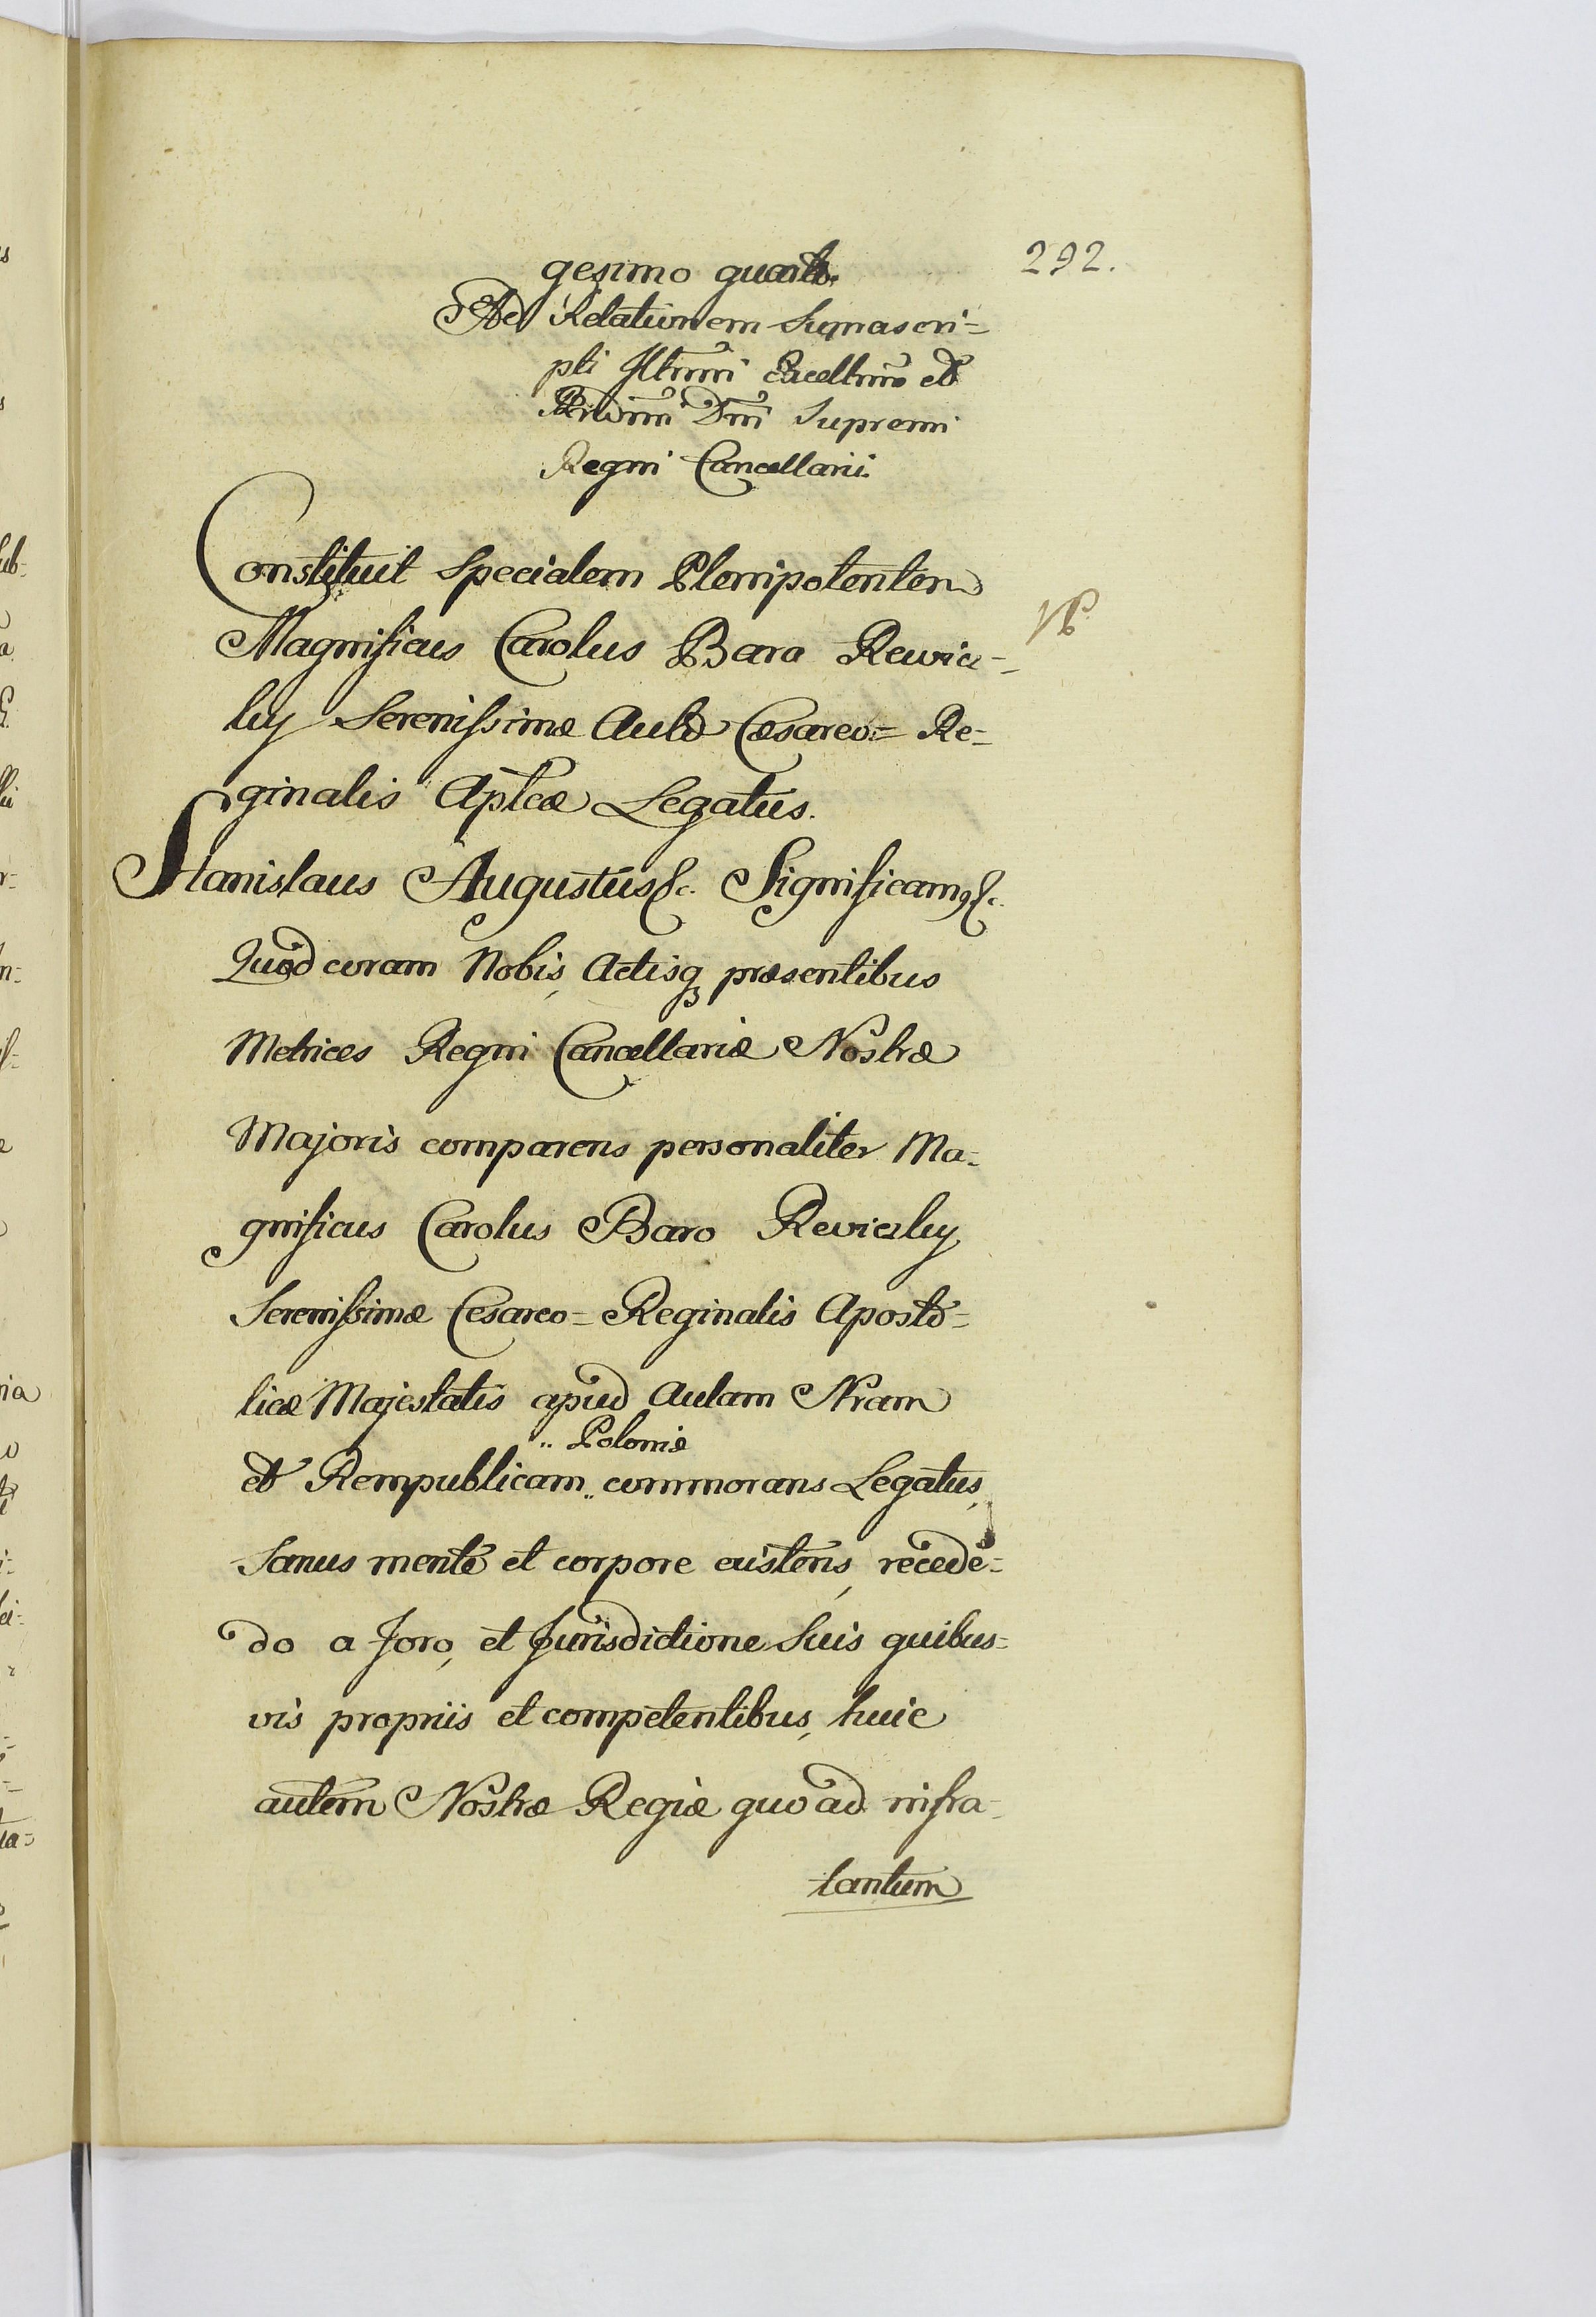 292.
gesimo quarto.
Ad Relationem Suprascri=
pti Illmi Excellmi et
Rndmi Dni Supremi
Regni Cancellarii.
Constituit Specialem Plenipotentem
Magnificus Carolus Baro Rewicz=
ky Serenissimæ Aulæ Cæsareo= Re=
ginalis Aplcæ Legatus.
Stanislaus Augustus &c. Significamq &c.
Quod coram Nobis, Actisq præsentibus
Metrices Regni Cancellariæ Nostræ
Majoris comparens personaliter Ma=
gnificus Carolus Baro Reviczky
Serenissimæ Cesareo= Reginalis Aposto=
licæ Majestatis apud Aulam Nram
.. Poloniæ
et Rempublicam .. commorans Legatus,
Sanus mente et corpore existens, receden=
do a foro, et Jurisdictione Suis quibus=
vis propriis et competentibus, huic
autem Nostræ Regiæ quo ad infra=
tantum